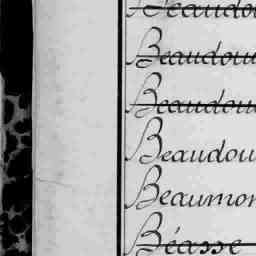 Beaudou
Beaudou
Beaudou
Beaudou
Beaumon
Béasse